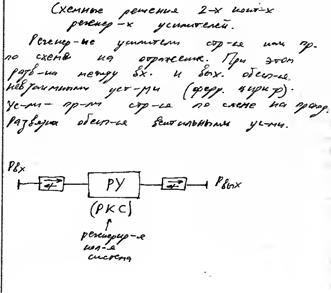 Схемные решения 2-х конт-х
регенер-х усилителей.
Регенер-ые усилители стр-ся или пр.
по схеме на отражение. При этом
разв-ка между вх. и вых. обесп-ся
невзаимными уст-ми (ферр. циркул).
Ус-ли- пр-ли стр-ся по схеме на проход.
Развязка обесп-ся вентильными ус-ми.
Pвх
РУ
Pвых
(РКС)
регенерир-я
кол-я
система